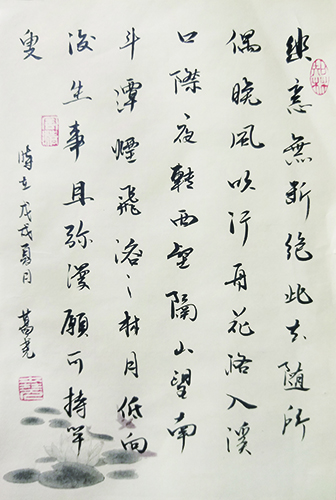 幽意無斷絕此去隨所
偶晚風吹行舟花路入溪
口際夜轉西壑隔山望南
斗潭煙飛溶〻林月低向
後生事且彌漫願為持竿
叟
時在戊戌夏月 葛堯